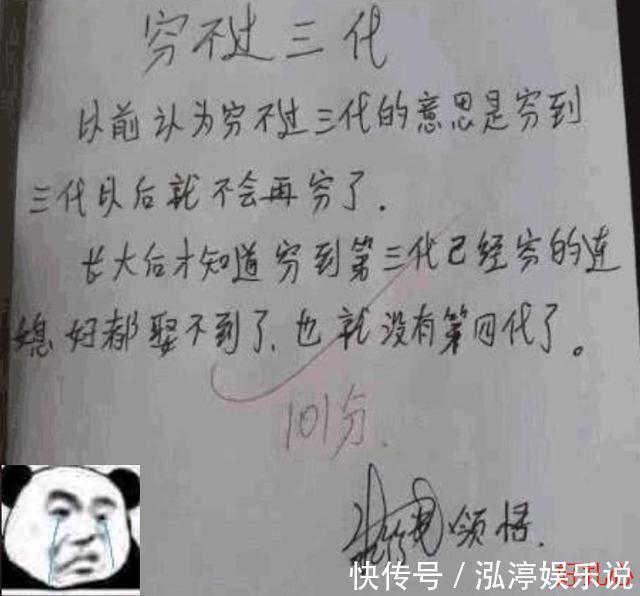 穷不过三代
以前认为穷不过三代的意思是穷到
三代以后就不会再穷了.
长大后才知道穷到第三代已经穷的连
媳妇都娶不到了、也就没有第四代了。
101分.
领悟.
快传号/泓渟娱乐说